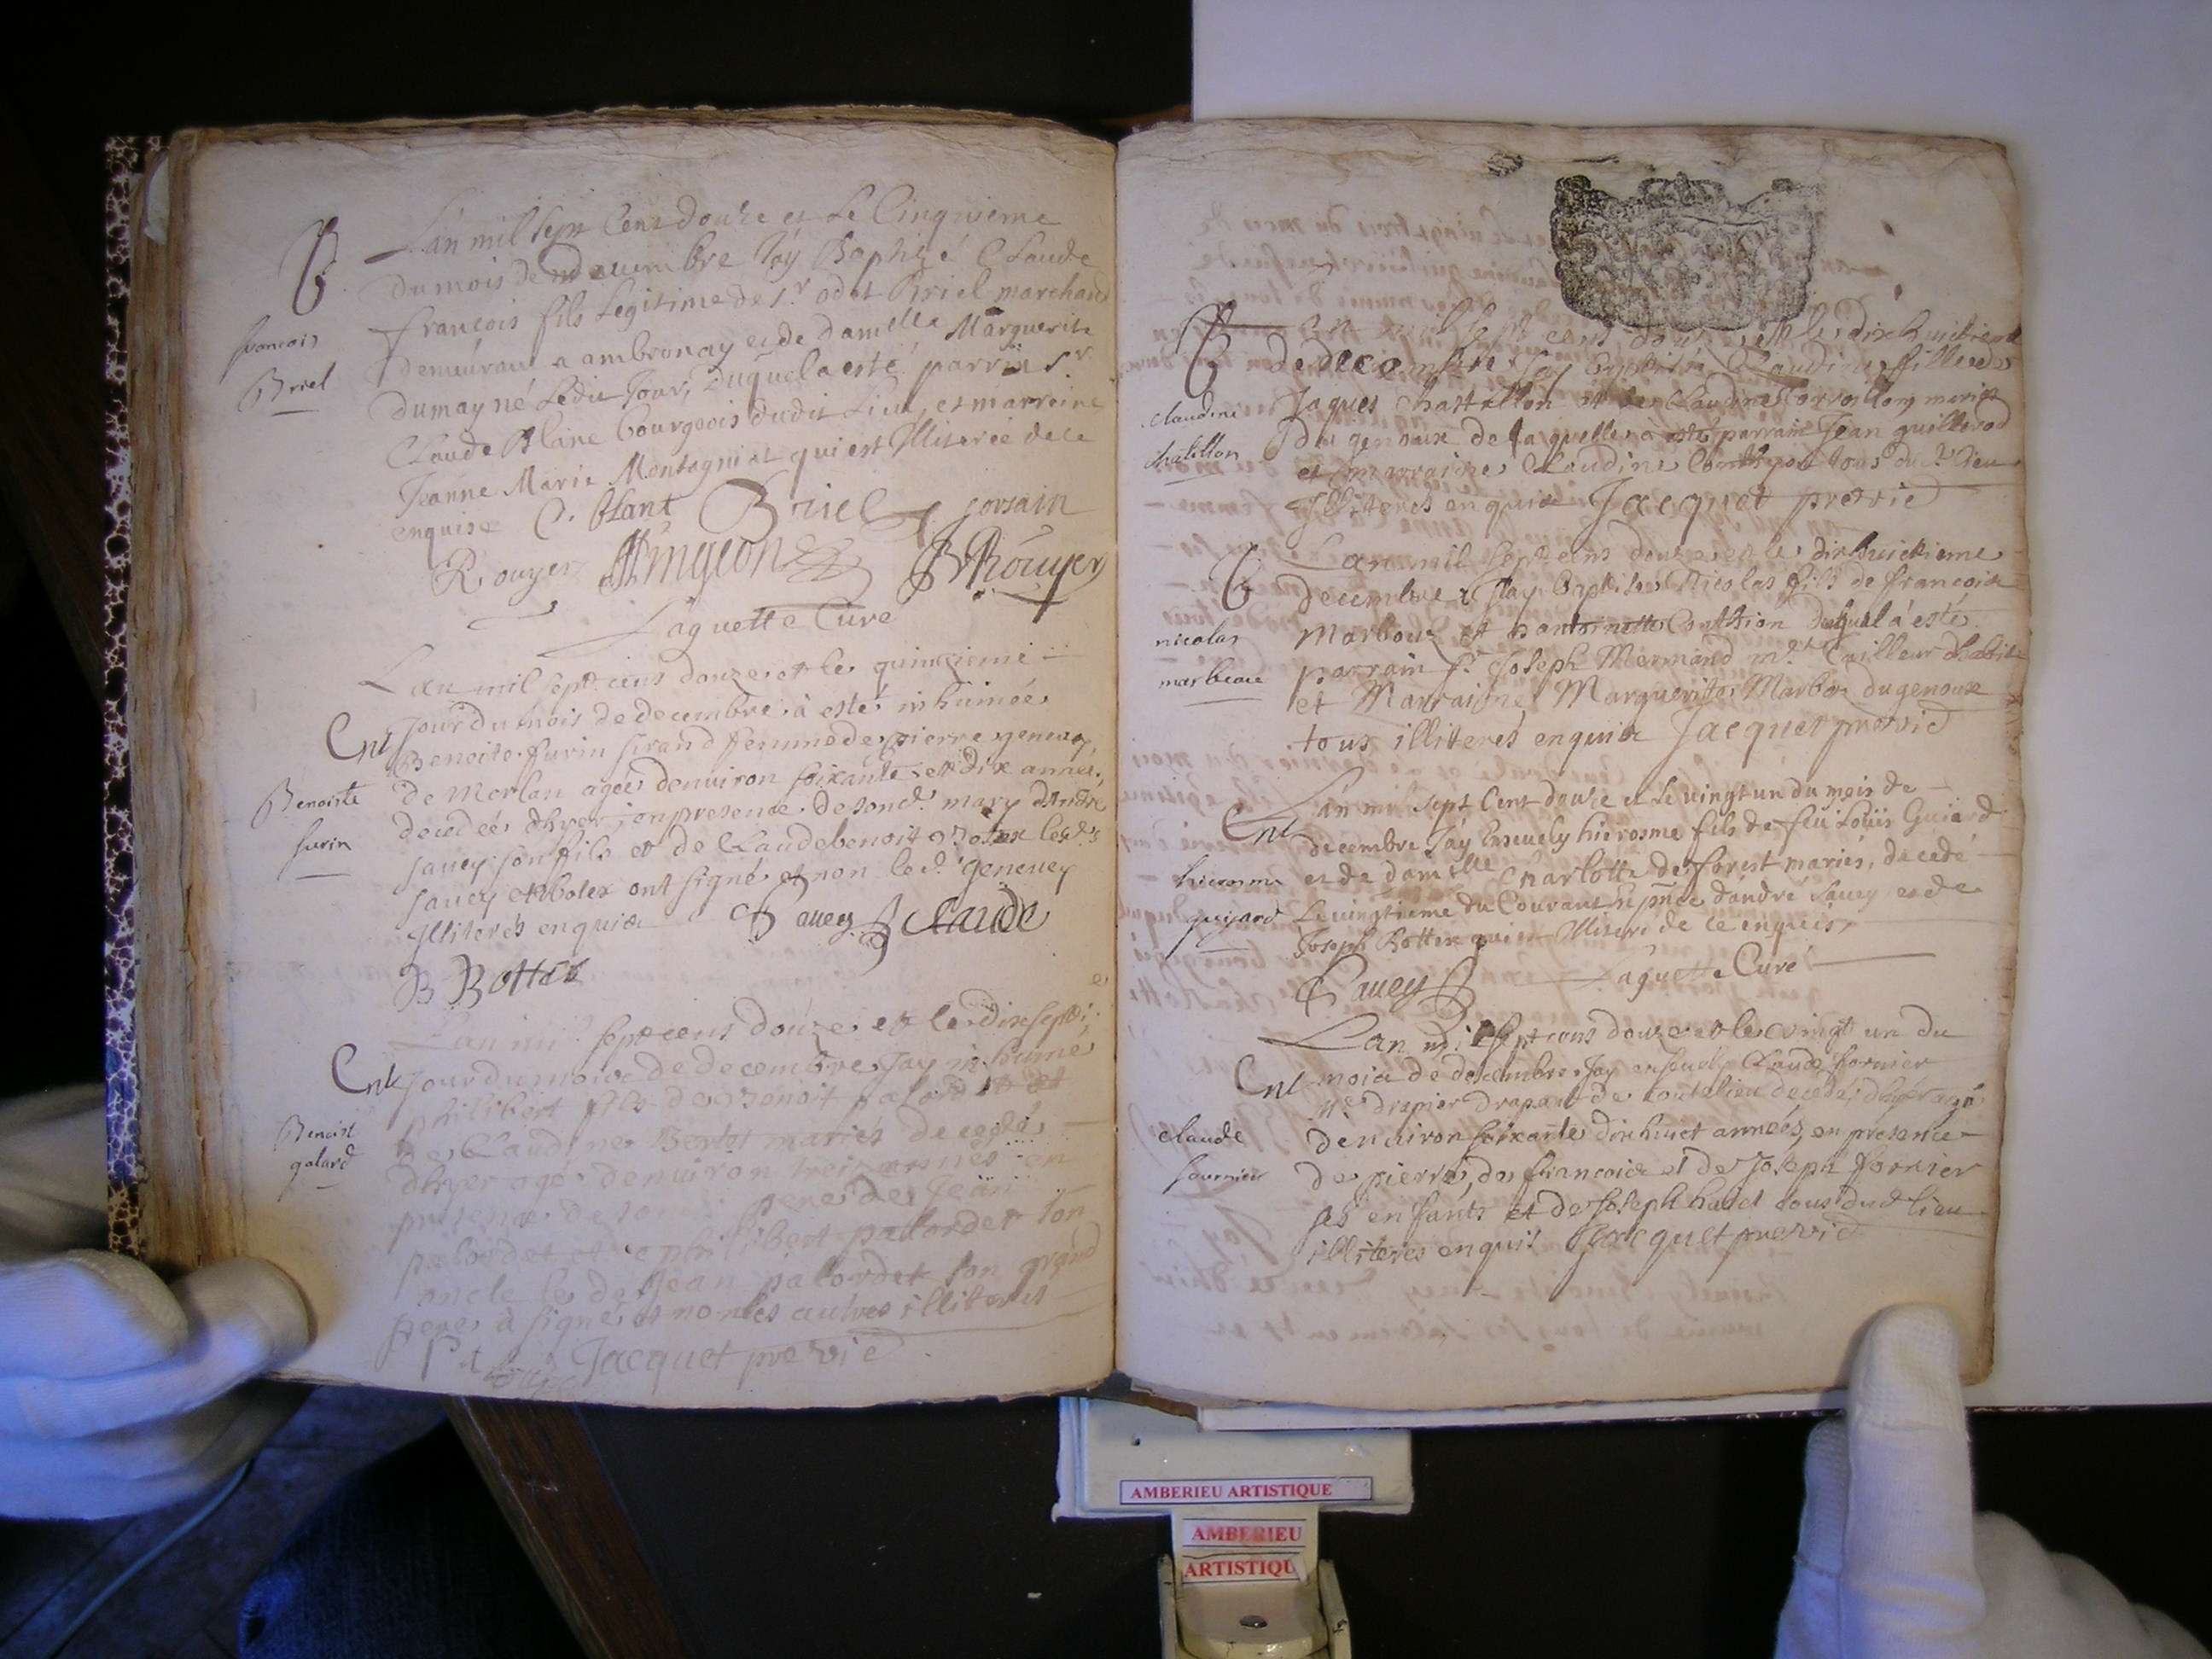 L'an mil sept Cent douze et Le Cinquieme
du mois de decembre J'ay Baptizé Claude
B.
françois fils Legitime de Sr odet Briel marchand
francois
Briel
demeurant a ambronay et de damlle Marguerite
dumay né Ledit Jour, Duquel a esté parrin Sr
Claude Blanc bourgeois dudit Lieu, et marreine
Jeanne Marie Montagniat qui est Illiterée de ce
enquise C. blanc Briel Jorsain
Rouyer Mingeon B Rouyer
Laguette Curé
L'an mil sept cens douze et le quinzieme
Ent
jour du mois de decembre à esté inhumée
Benoite furin femme de pierre genevey
Benoiste
furin
de Morlan agée denviron soixante et dix années
decedée dhyer, en presence de sond. mary d'André
sauey son fils et de Claude benoit Botex lesd.s
sauey et botex ont signé et non led. genevey
Illiterés enquis Sauey Claude
B Bottex
L'an mil sept cens douze et le dix septi e
Ent
jour du mois de decembre Jay inhumé
philibert fils de Benoit palord et
Benoist
galard
de Claudine Bertet mariés decedé
dhyer agé denviron trois années en
presence de son pere de Jean
palordet et philibert palordet son
oncle led. Jean palordet son grand
pere a signé et non les autres illiterés
Jacquet previc
L'an mil sept cens douze et le dix huictieme
B
de decembre Jay baptisé Claudine fille de
claudine
chatillon
Jaques Chastillon et de Claudine Corvollon mariés
du genoux de laquelle a esté parrain Jean guillerod
et marraine Claudine Conthion tous dud. lieu
Illiterés enquis Jacquet previc
L'an mil sept cens douze et le dix huictieme
B
decembre Jay baptisé Nicolas fils de francois
nicolas
marboux
Marboux et d'antoinette Conthion duquel a esté
parrain Sr Joseph Mermand m.e tailleur d'habits
et Marraine Marguerite Marbou du genoux
tous illiterés enquis Jacquet previc
L'an mil sept Cent douze et Le vingt un du mois de
Ent
decembre J'ay Enseuely hierosme fils de feu Louïs Guiard
hierosme
guyard
et de damelle Charlotte de forest mariés, decedé
Le vingtieme du Courant En pnce d'andré Sauey et de
Joseph Bottex qui est Illiteré de ce enqueis,
Sauey Laguette Curé
L'an mil sept cens douze et le vingt un du
Ent
mois de decembre Jay enseuely Claude fornier
claude
fournier
m.e drapier drapant de tout lieu decedé dhyer agé
denuiron soixante dix huict années, en presence
de pierre, de francois et de Joseph fornier
ses enfants et de Joseph hadet tous dud. lieu
illiterés enquis Jacquet previc
AMBERIEU ARTISTIQUE
AMBERIEU
ARTISTIQU